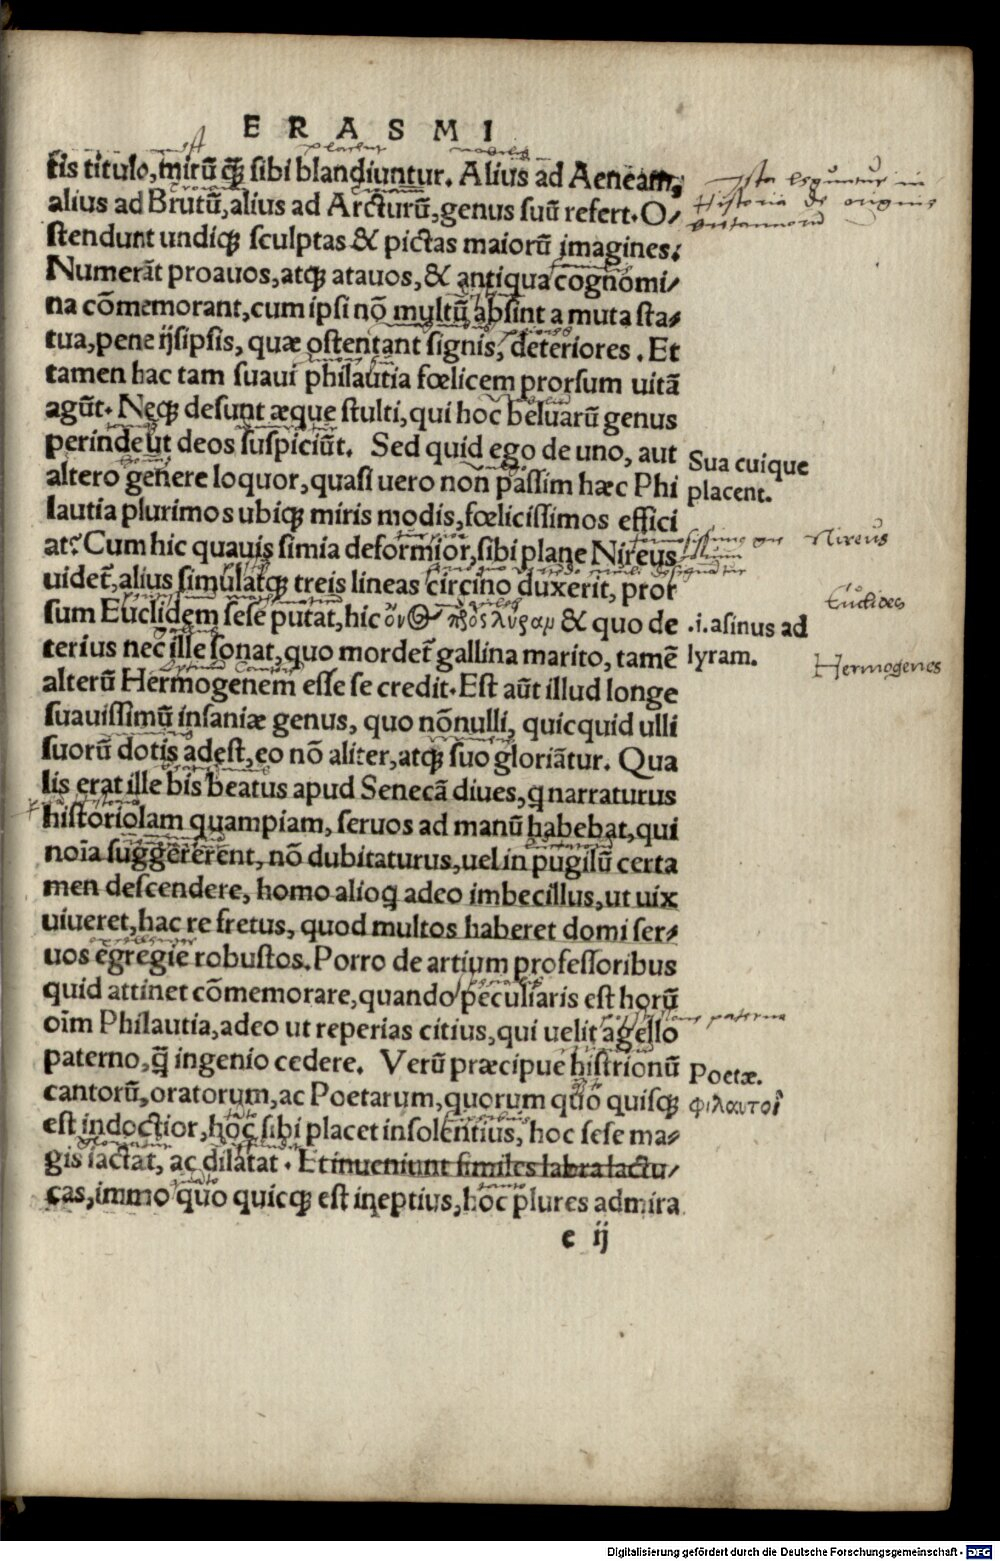 ERASMI
tis titulo, mirū q̄ꝫ sibi blandiuntur. Alius ad Aeneam,
alius ad Brutū, alius ad Arcturū, genus suū refert. O/
stendunt undiqꝫ sculptas & pictas maiorū imagines.
Numerāt proauos, atqꝫ atauos, & antiqua cognomi/
na cōmemorant, cum ipsi nō multū absint a muta sta/
tua, pene ijsipsis, quæ ostentant signis, deteriores. Et
tamen hac tam suaui philautia fœlicem prorsum uitā
agūt. Neqꝫ desunt æque stulti, qui hoc beluarū genus
perinde ut deos suspiciūt. Sed quid ego de uno, aut
altero genere loquor, quasi uero non passim hæc Phi
lautia plurimos ubiqꝫ miris modis, fœlicissimos effici
at? Cum hic quauis simia deformior, sibi plane Nireus
uidet̄, alius simulatqꝫ treis lineas circino duxerit, pror
sum Euclidem sese putat, hic ὄνος πρὸς λύραμ & quo de
terius nec ille sonat, quo mordet̄ gallina marito, tamē
alterū Hermogenem esse se credit. Est aūt illud longe
suauissimū insaniæ genus, quo nōnulli, quicquid ulli
suorū dotis adest, eo nō aliter, atqꝫ suo gloriātur. Qua
lis erat ille bis beatus apud Senecā diues, q narraturus
historiolam quampiam, seruos ad manū habebat, qui
noīa suggererent, nō dubitaturus, uel in pugilū certa
men descendere, homo alioq adeo imbecillus, ut uix
uiueret, hac re fretus, quod multos haberet domi ser/
uos egregie robustos. Porro de artium professoribus
quid attinet cōmemorare, quando peculiaris est horū
oīm Philautia, adeo ut reperias citius, qui uelit agello
paterno, q̄ ingenio cedere. Verū præcipue histrionū
cantorū, oratorum, ac Poetarum, quorum quo quisqꝫ
est indoctior, hoc sibi placet insolentius, hoc sese ma/
gis iactat, ac dilatat. Et inueniunt similes labra lactu/
cas, immo quo quicqꝫ est ineptius, hoc plures admira
e ij
Ista leguntur in
Historia de origine
Sua cuique
placent.
Nireus
Euclides
.i. asinus ad
lyram.
Hermogenes
Poetæ.
φιλαυτοί
Digitalisierung gefördert durch die Deutsche Forschungsgemeinschaft - DFG